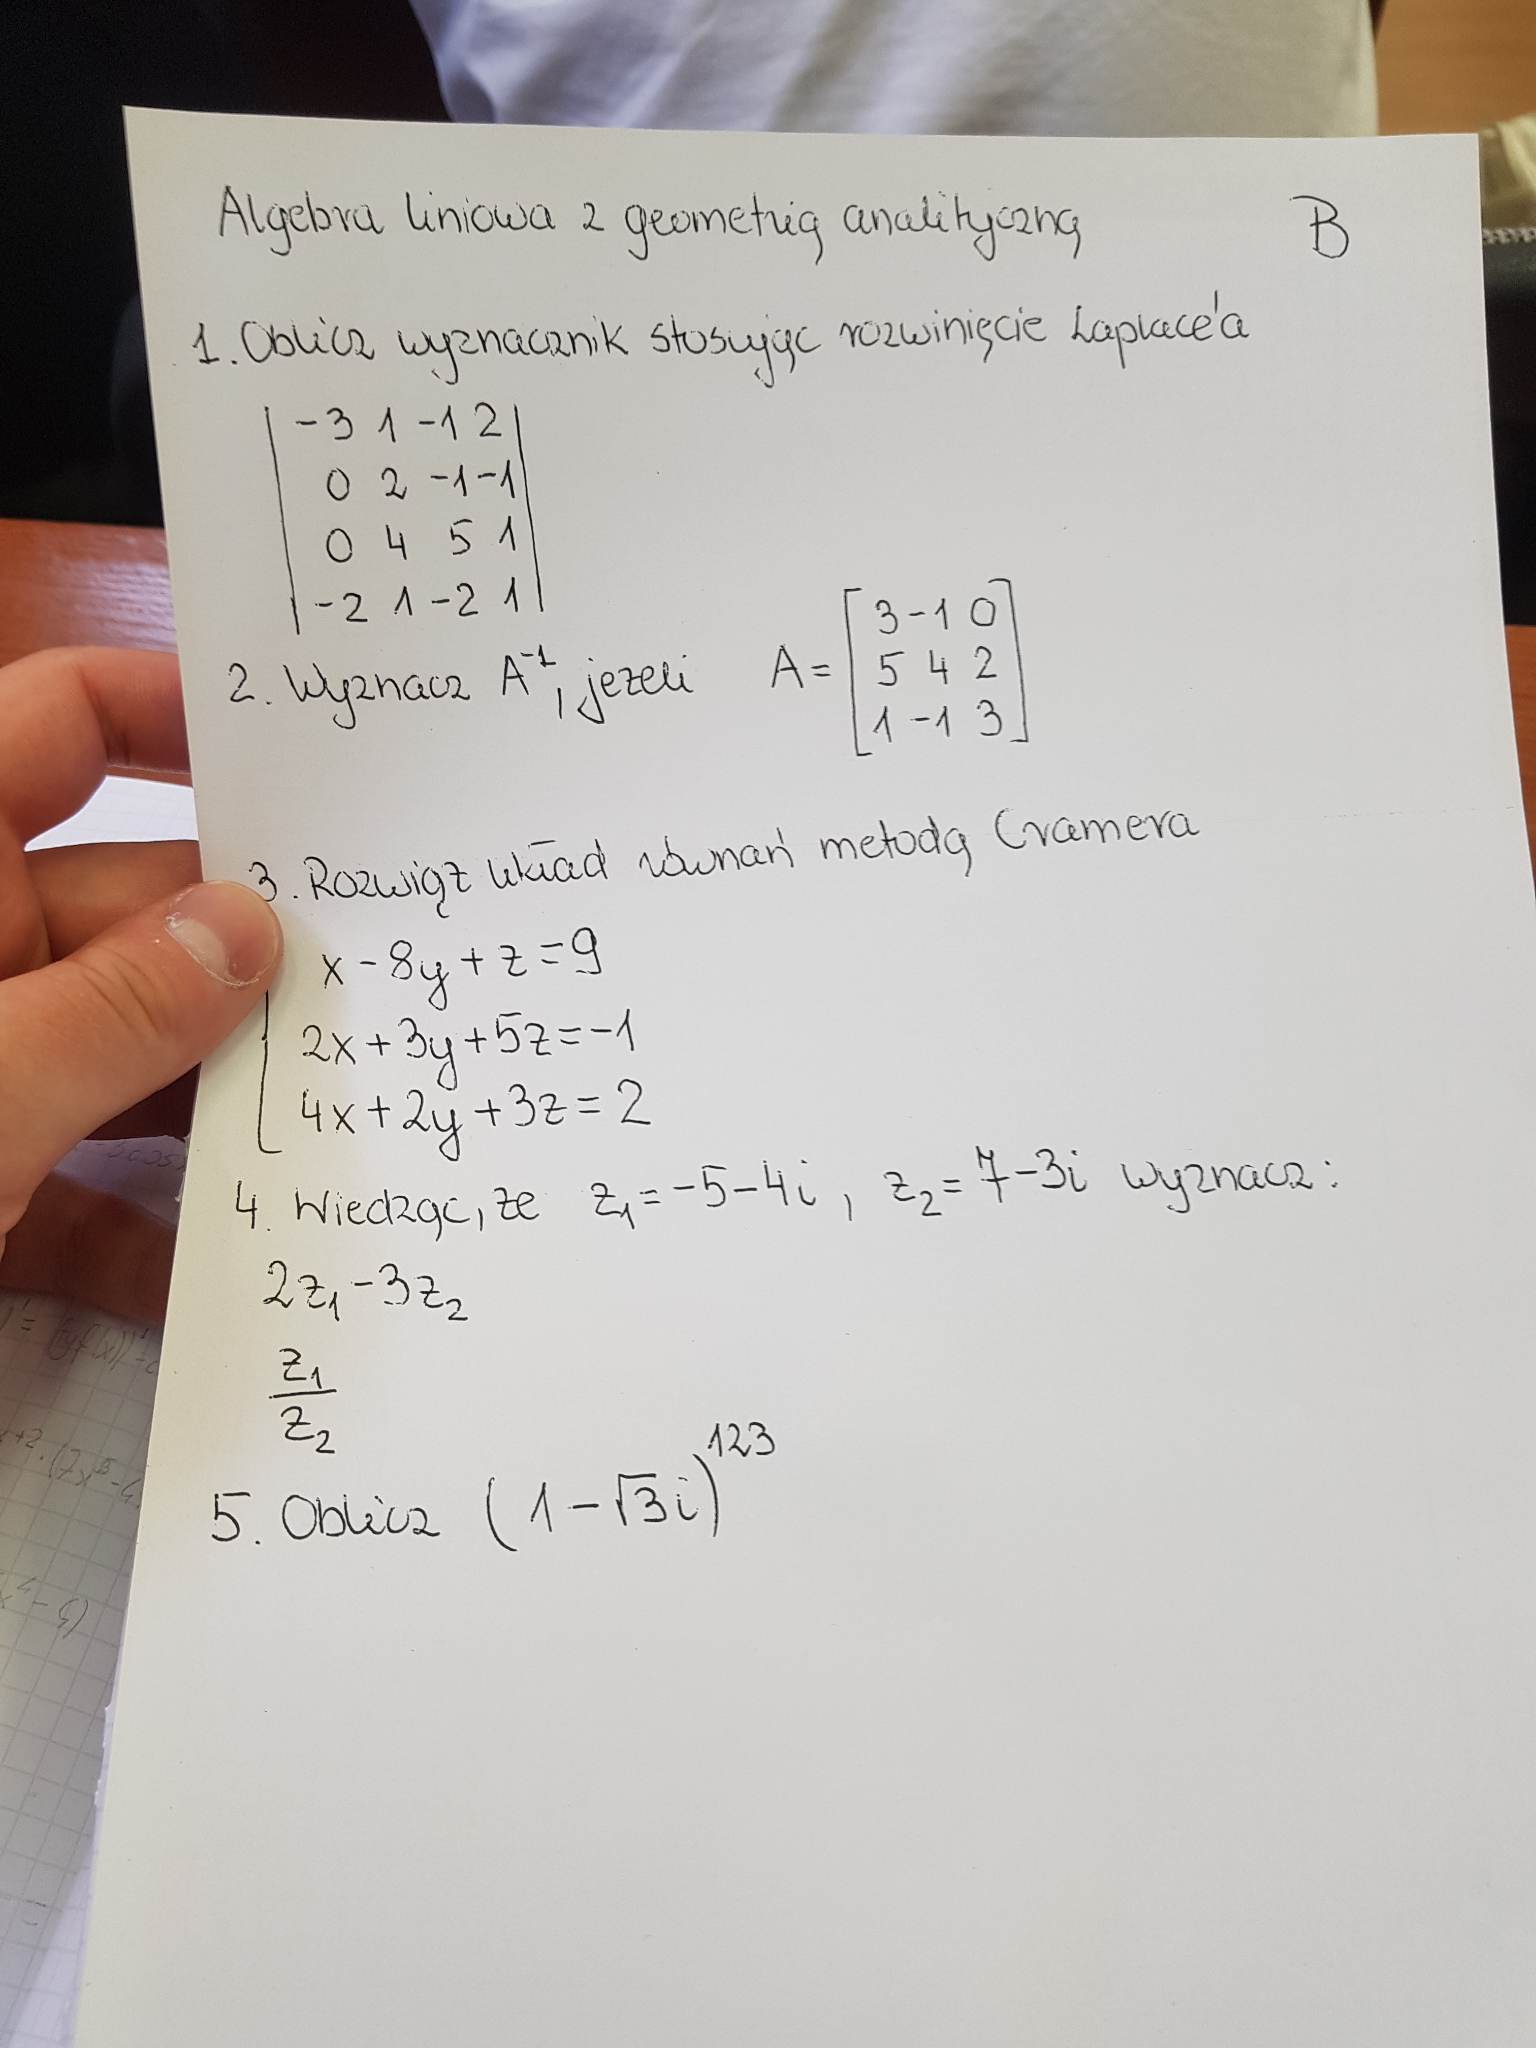 Algebra liniowa z geometrią analityczną B
1. Oblicz wyznacznik stosując rozwinięcie Laplace'a
| -3 1 -1 2 |
| 0 2 -1 -1 |
| 0 4 5 1 |
| -2 1 -2 1 |
2. Wyznacz A⁻¹, jeżeli A = [ 3 -1 0
5 4 2
1 -1 3 ]
3. Rozwiąż układ równań metodą Cramera
x - 8y + z = 9
2x + 3y + 5z = -1
4x + 2y + 3z = 2
4. Wiedząc, że z₁ = -5 - 4i, z₂ = 7 - 3i wyznacz:
2z₁ - 3z₂
z₁
z₂
5. Oblicz (1 - √3i)¹²³